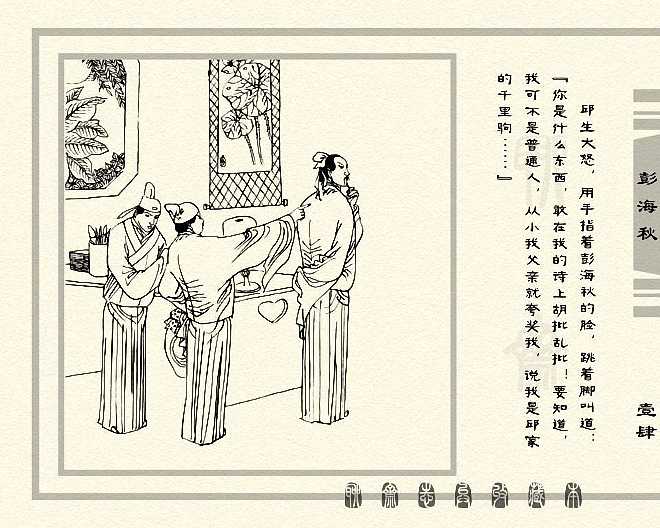 邱生大怒，用手指着彭海秋的脸，跳着脚叫道：
『你是什么东西，敢在我的诗上胡批乱批！要知道，
我可不是普通人，从小我父亲就夸奖我，说我是邱家
的千里驹……』
彭海秋
壹肆